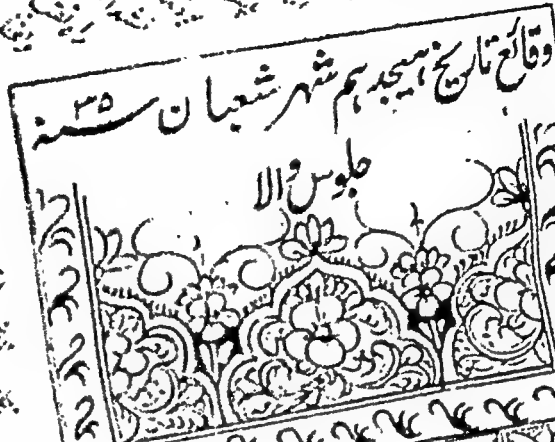 وقائع تاریخ هیجدهم شهر شعبان سنه ۳۵
جلوس والا